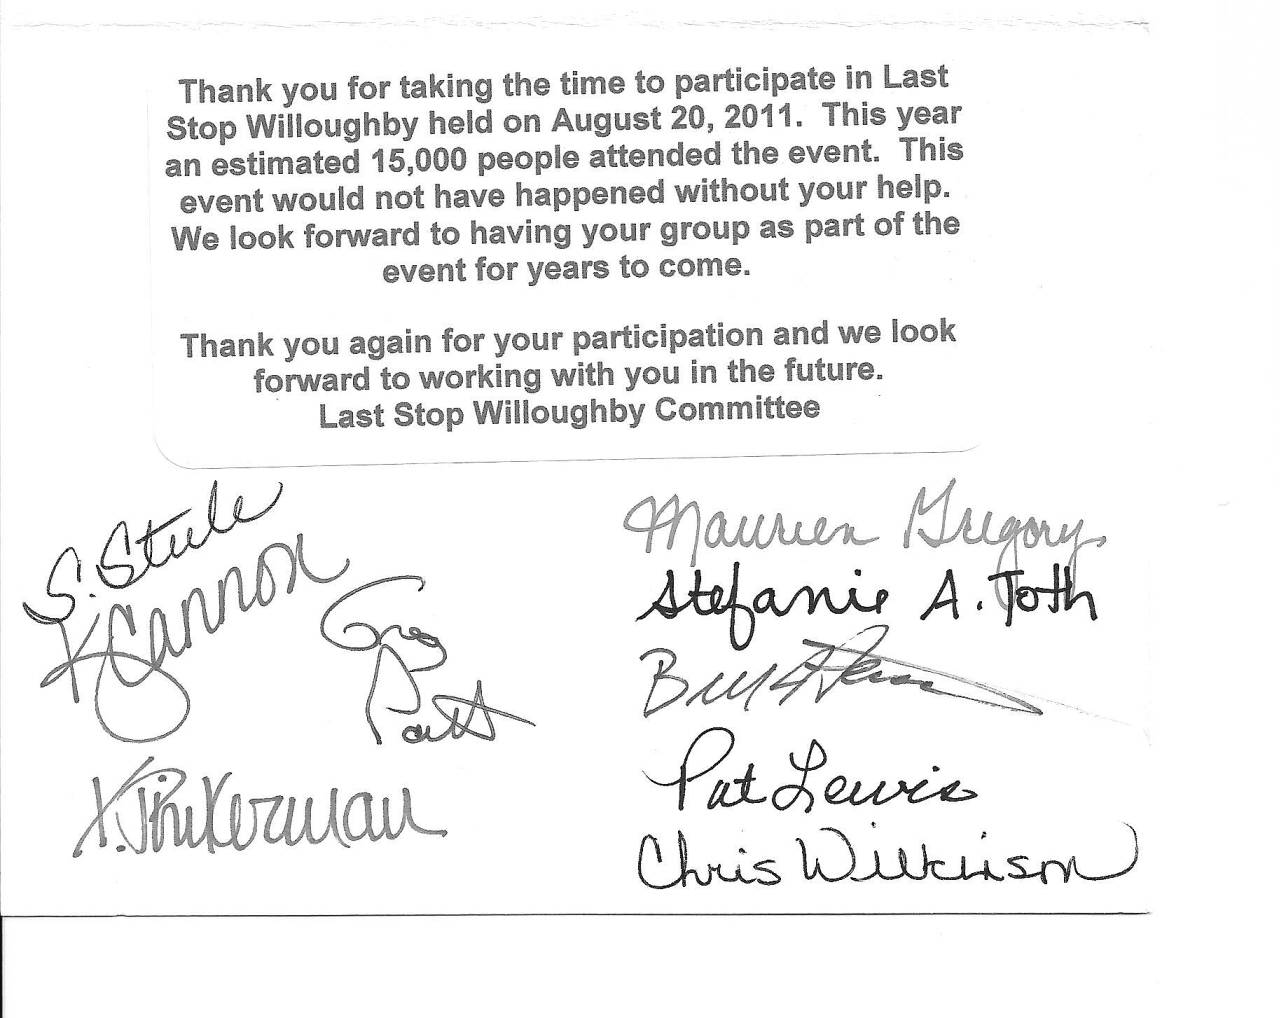 Thank you for taking the time to participate in Last
Stop Willoughby held on August 20, 2011. This year
an estimated 15,000 people attended the event. This
event would not have happened without your help.
We look forward to having your group as part of the
event for years to come.
Thank you again for your participation and we look
forward to working with you in the future.
Last Stop Willoughby Committee
S. Steele
K Cannon
Greg
Patt
K. Pinkerman
Maureen Gregory
Stefanie A. Toth
Bill
Pat Lewis
Chris Wilkinson